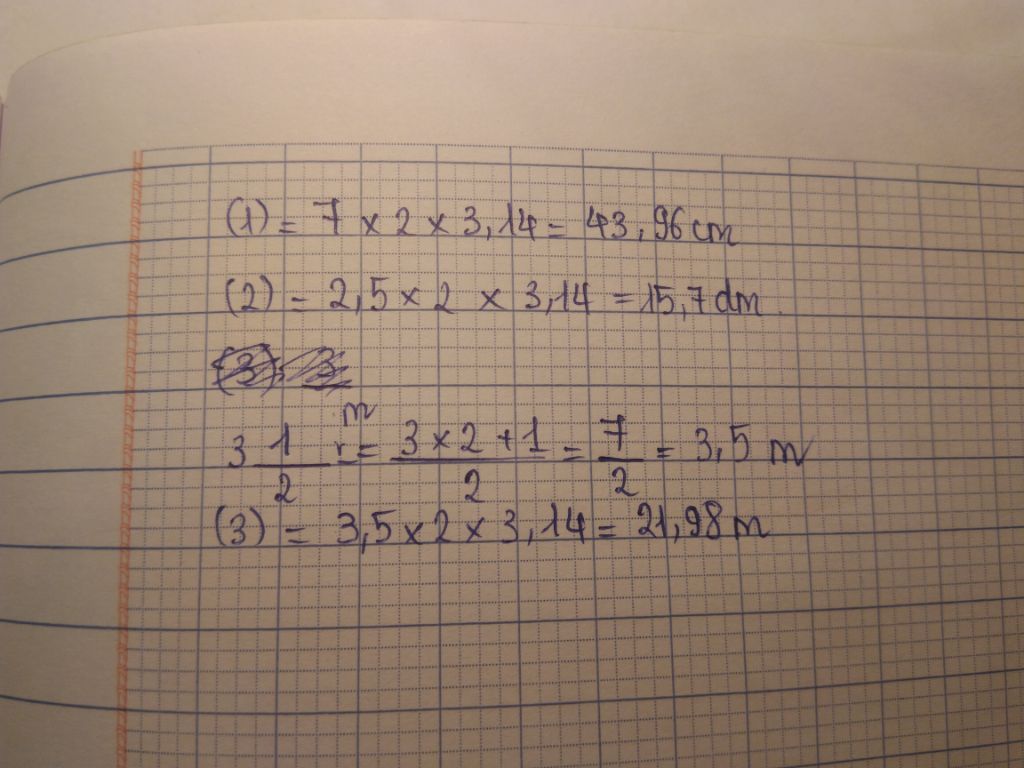 (1) = 7 × 2 × 3,14 = 43,96 cm
(2) = 2,5 × 2 × 3,14 = 15,7 dm
3 1/2 m = (3 × 2 + 1)/2 = 7/2 = 3,5 m
(3) = 3,5 × 2 × 3,14 = 21,98 m